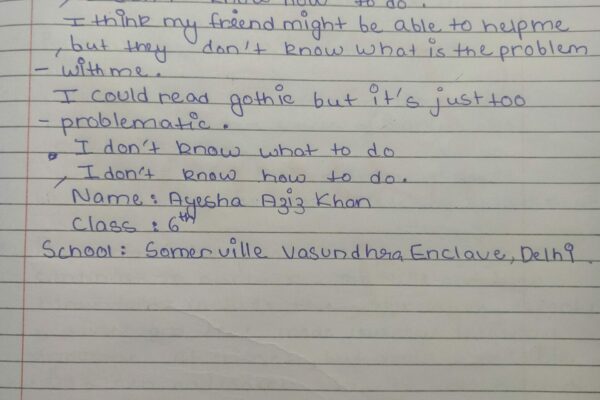 know how to do.
I think my friend might be able to help me
, but they don't know what is the problem
- with me.
I could read gothic but it's just too
- problematic.
. I don't know what to do
, I don't know how to do.
Name: Ayesha Aziz Khan
Class : 6th
School: Somerville Vasundhra Enclave, Delhi.